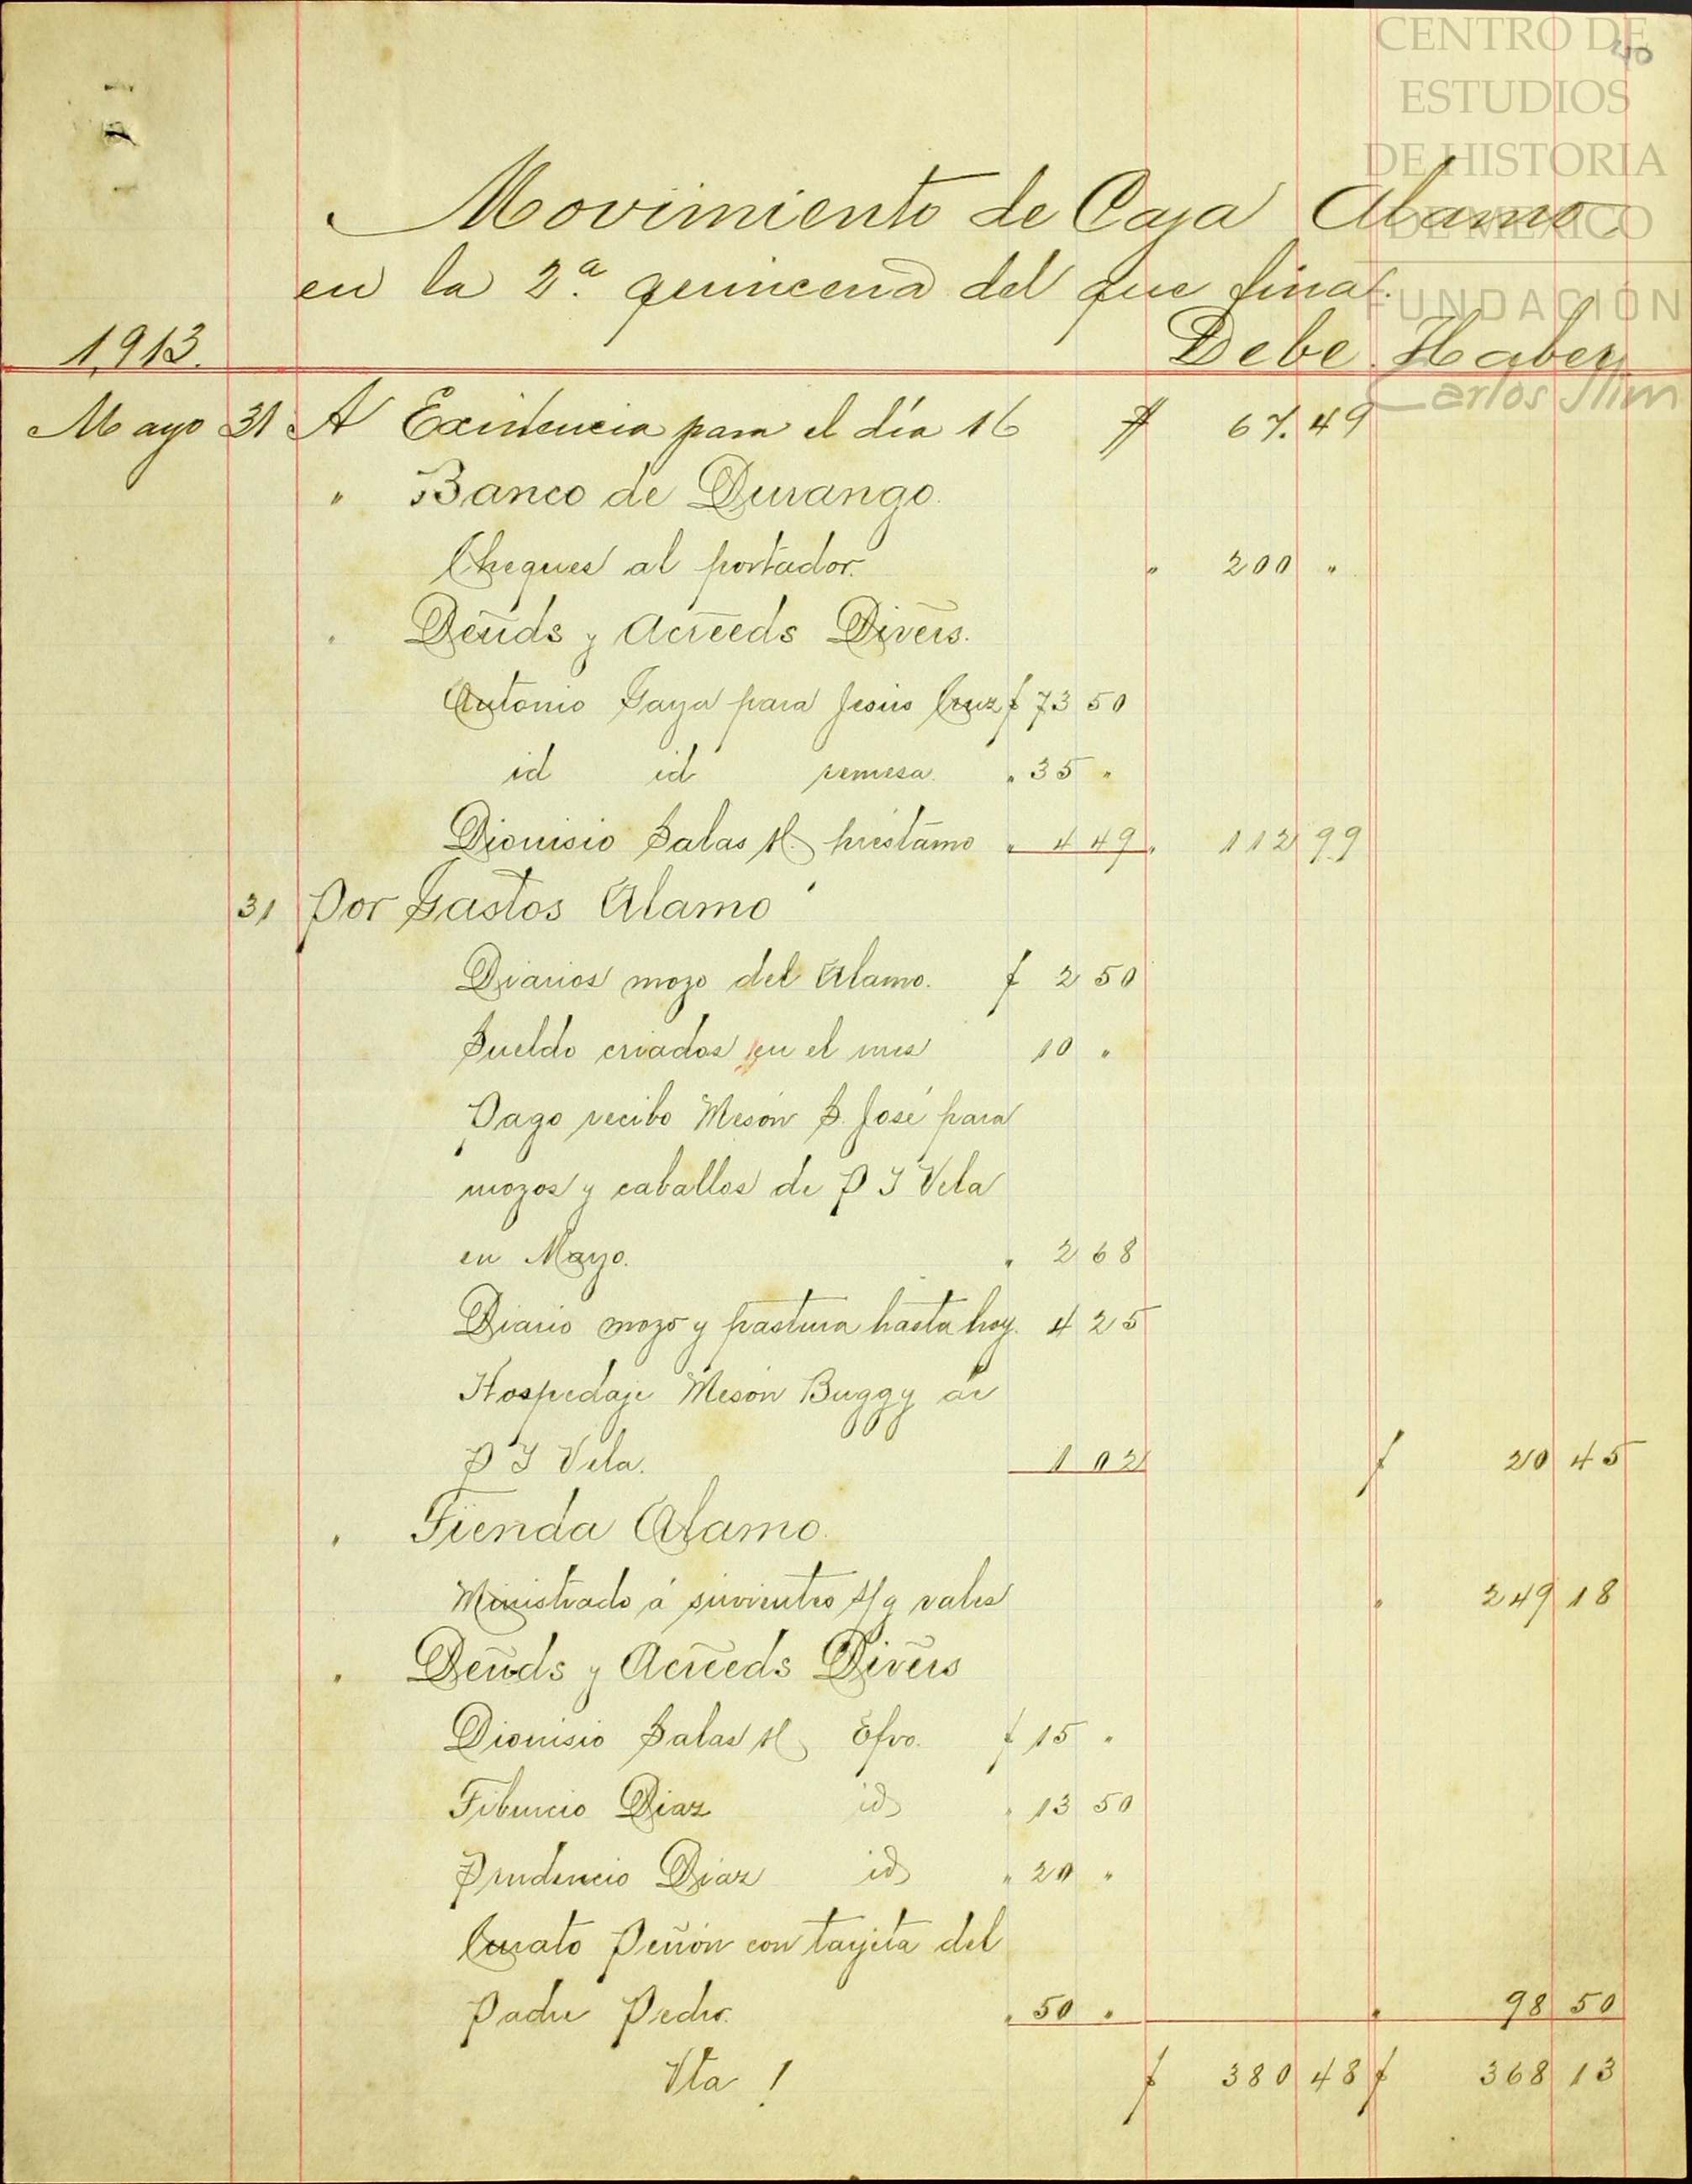 40
CENTRO DE
ESTUDIOS
DE HISTORIA
DE MÉXICO
FUNDACIÓN
Carlos Slim
Movimiento de Caja Alamo
en la 2.ª quincena del que fina.
1,913. Debe Haber
Mayo 31 A Existencia para el día 16 $ 67.49
" Banco de Durango.
Cheques al portador. " 200 "
" Deūds y Acr̄eeds Divērs.
Antonio Gaya para Jesús Cruz $ 73 50
id id remesa. " 35 "
Dionisio Salas H. préstamo " 4 49 " 112 99
31 Por Gastos Alamo
Diarios mozo del Alamo. $ 2 50
Sueldo criados en el mes 10 "
Pago recibo Mesón S. José para
mozos y caballos de P I Vela
en Mayo. " 2 68
Diario mozo y pastura hasta hoy. 4 25
Hospedaje Mesón Buggy de
P I Vela. 1 02 $ 20 45
" Tienda Alamo.
Ministrado á sirvientes s/q vales " 249 18
" Deūds y Acr̄eeds Divērs
Dionisio Salas H Efvo. $ 15 "
Tiburcio Diaz id " 13 50
Prudencio Diaz id " 20 "
Curato Peñón con tarjeta del
Padre Pedro. " 50 " " 98 50
Vta ! $ 380 48 $ 368 13